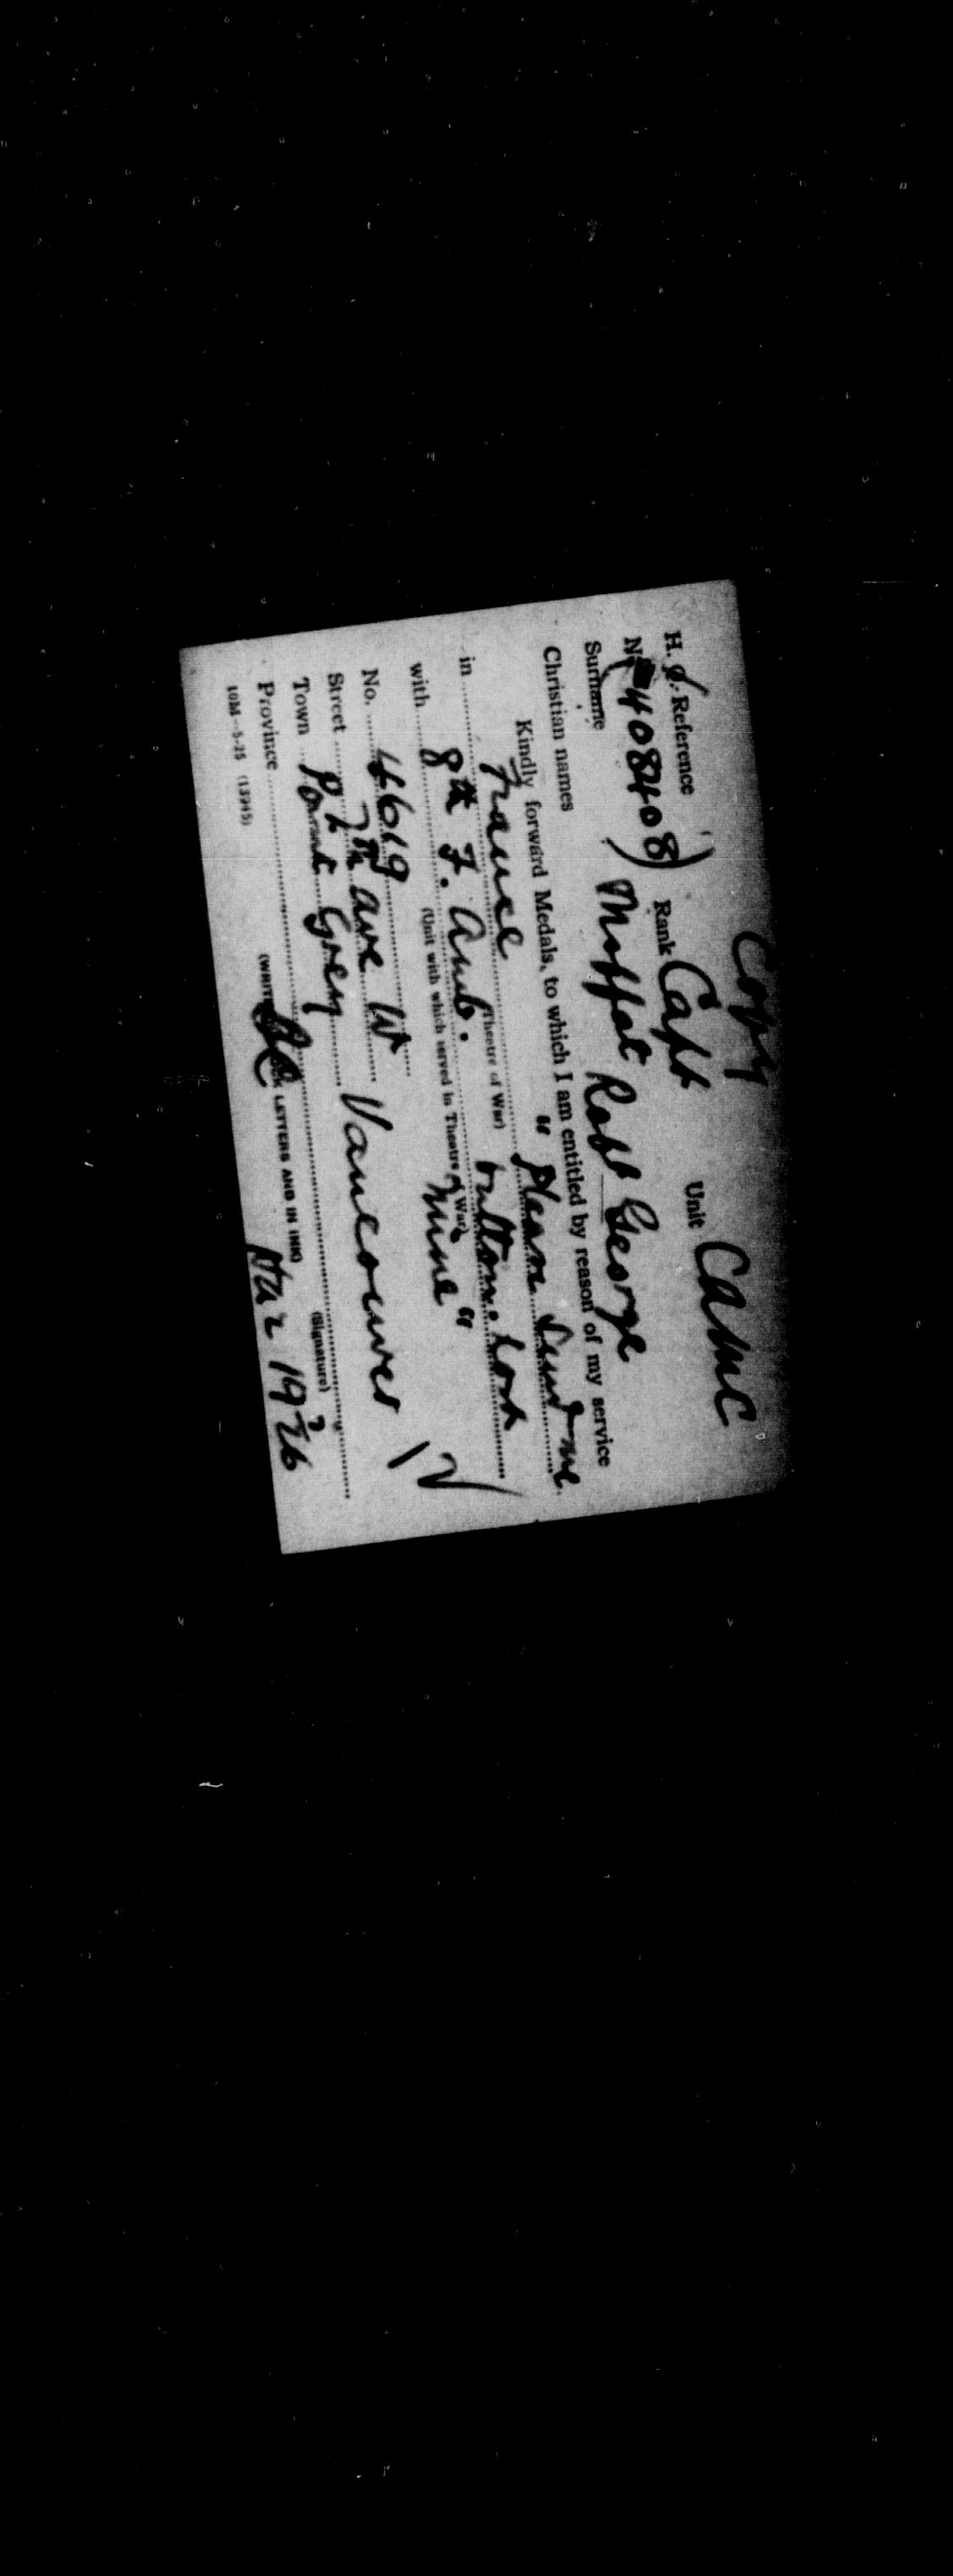 Copy
H. Q. Reference
No 408408) Rank Capt Unit CAMC
Surname Moffat Robt George
Christian names
Kindly forward Medals, to which I am entitled by reason of my service
in France "Please send me
(Theatre of War)
with 8th F. Amb. button. Lost
(Unit with which served in Theatre of War) mine"
No. 4619
Street 7th ave W Vancouver
Town Point Grey
Province BC
(Signature)
(WRITE LETTERS AND IN INK)
10M-5-25 (13945)